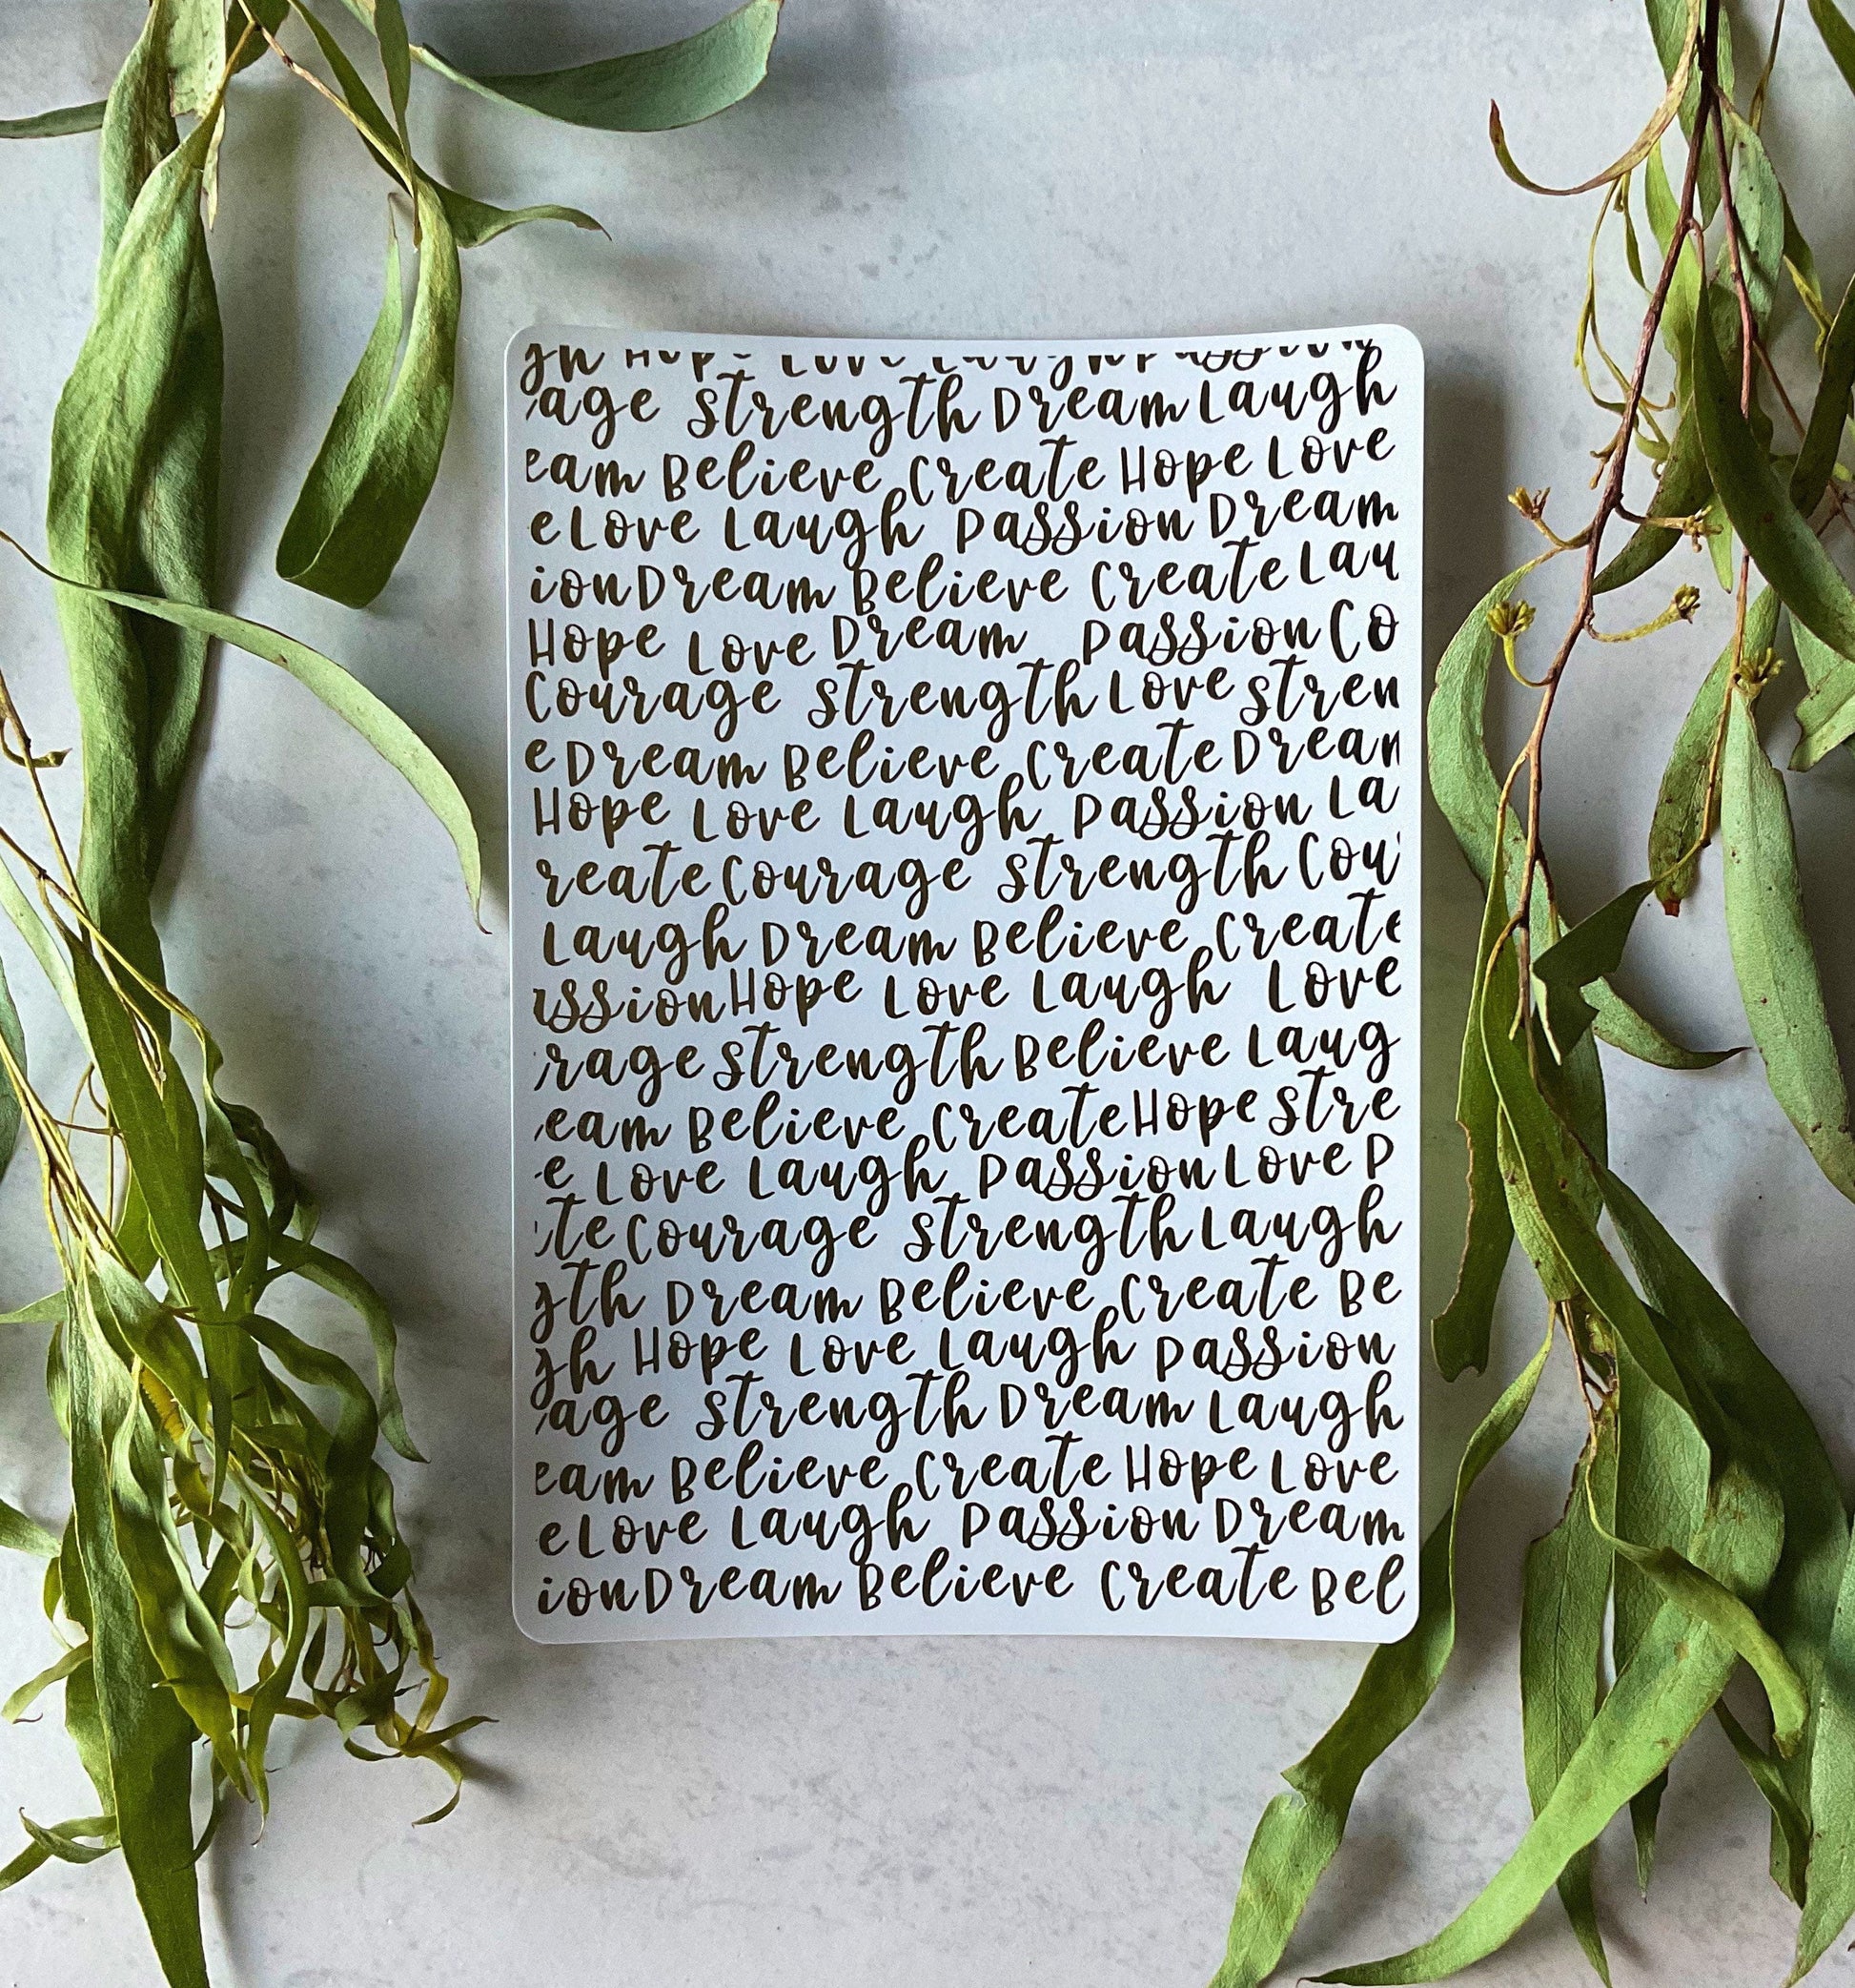 gh Hope Love Laugh Passion
age Strength Dream Laugh
eam Believe Create Hope Love
e Love Laugh Passion Dream
ion Dream Believe Create Lau
Hope Love Dream Passion Co
Courage Strength Love Stren
e Dream Believe Create Dream
Hope Love Laugh Passion La
reate Courage Strength Cou
Laugh Dream Believe Create
assion Hope Love Laugh Love
rage Strength Believe Laug
eam Believe Create Hope Stre
e Love Laugh Passion Love P
te Courage Strength Laugh
gth Dream Believe Create Be
gh Hope Love Laugh Passion
age Strength Dream Laugh
eam Believe Create Hope Love
e Love Laugh Passion Dream
ion Dream Believe Create Bel